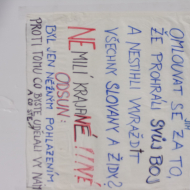 JIM
OMLOUVAT SE ZA TO,
ŽE PROHRÁLI SVŮJ BOJ
A NESTIHLI VYVRAŽDIT
VŠECHNY SLOVANY A ŽIDY?
NEMILÍ KRAJANÉ!!! NÉ
ODSUN:
BYL JEN NĚŽNÝM POHLAZENÍM
PROTI TOMU CO BYSTE UDĚLALI VY NÁM